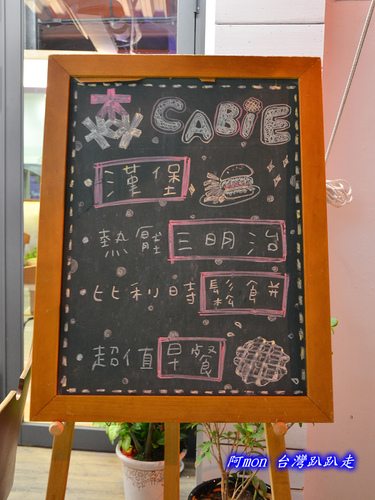 森 CABIE
漢堡
熱壓三明治
比利時鬆餅
超值早餐
阿mon 台灣趴趴走